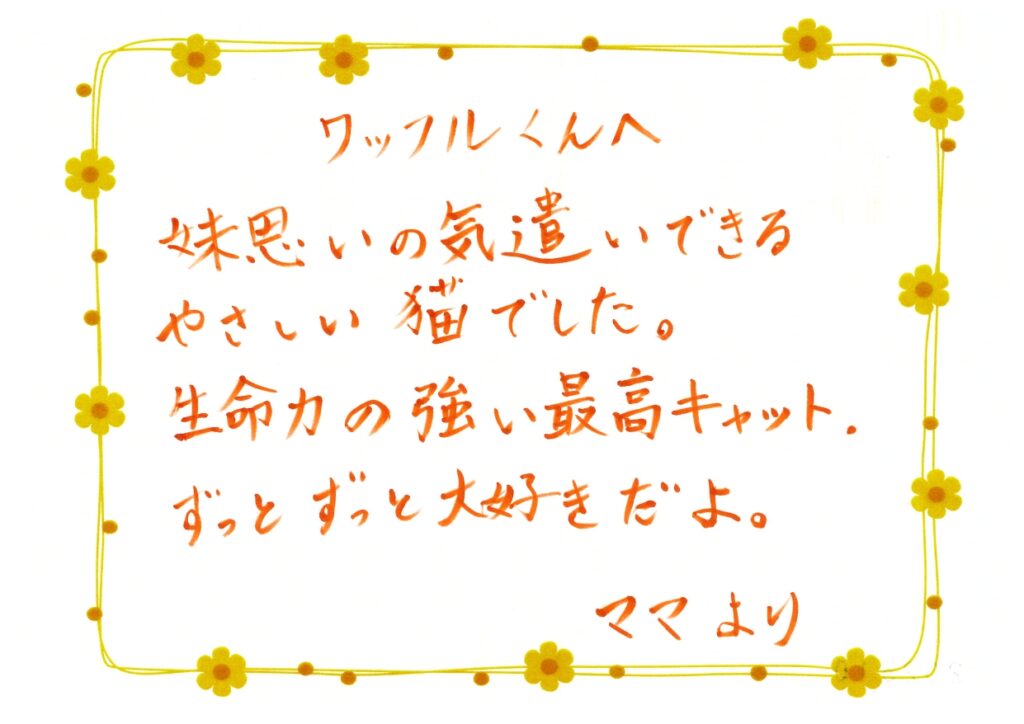 ワッフルくんへ
妹思いの気遣いできる
やさしい猫でした。
生命力の強い最高キャット.
ずっとずっと大好きだよ。
ママより